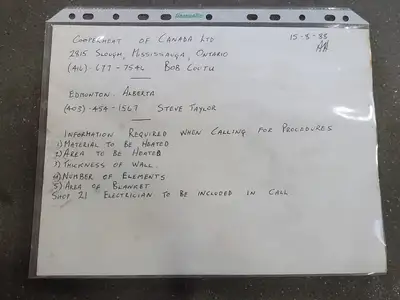 15-8-88
COOPERHEAT OF CANADA LTD
2815 SLOUGH, MISSISSAUGA, ONTARIO
(416)-677-7546 BOB COUTU
EDMONTON. ALBERTA
(403)-454-1567 STEVE TAYLOR
INFORMATION REQUIRED WHEN CALLING FOR PROCEDURES
1) MATERIAL TO BE HEATED
2) AREA TO BE HEATED
3) THICKNESS OF WALL.
4) NUMBER OF ELEMENTS
5) AREA OF BLANKET
SHOP 21 ELECTRICIAN TO BE INCLUDED IN CALL